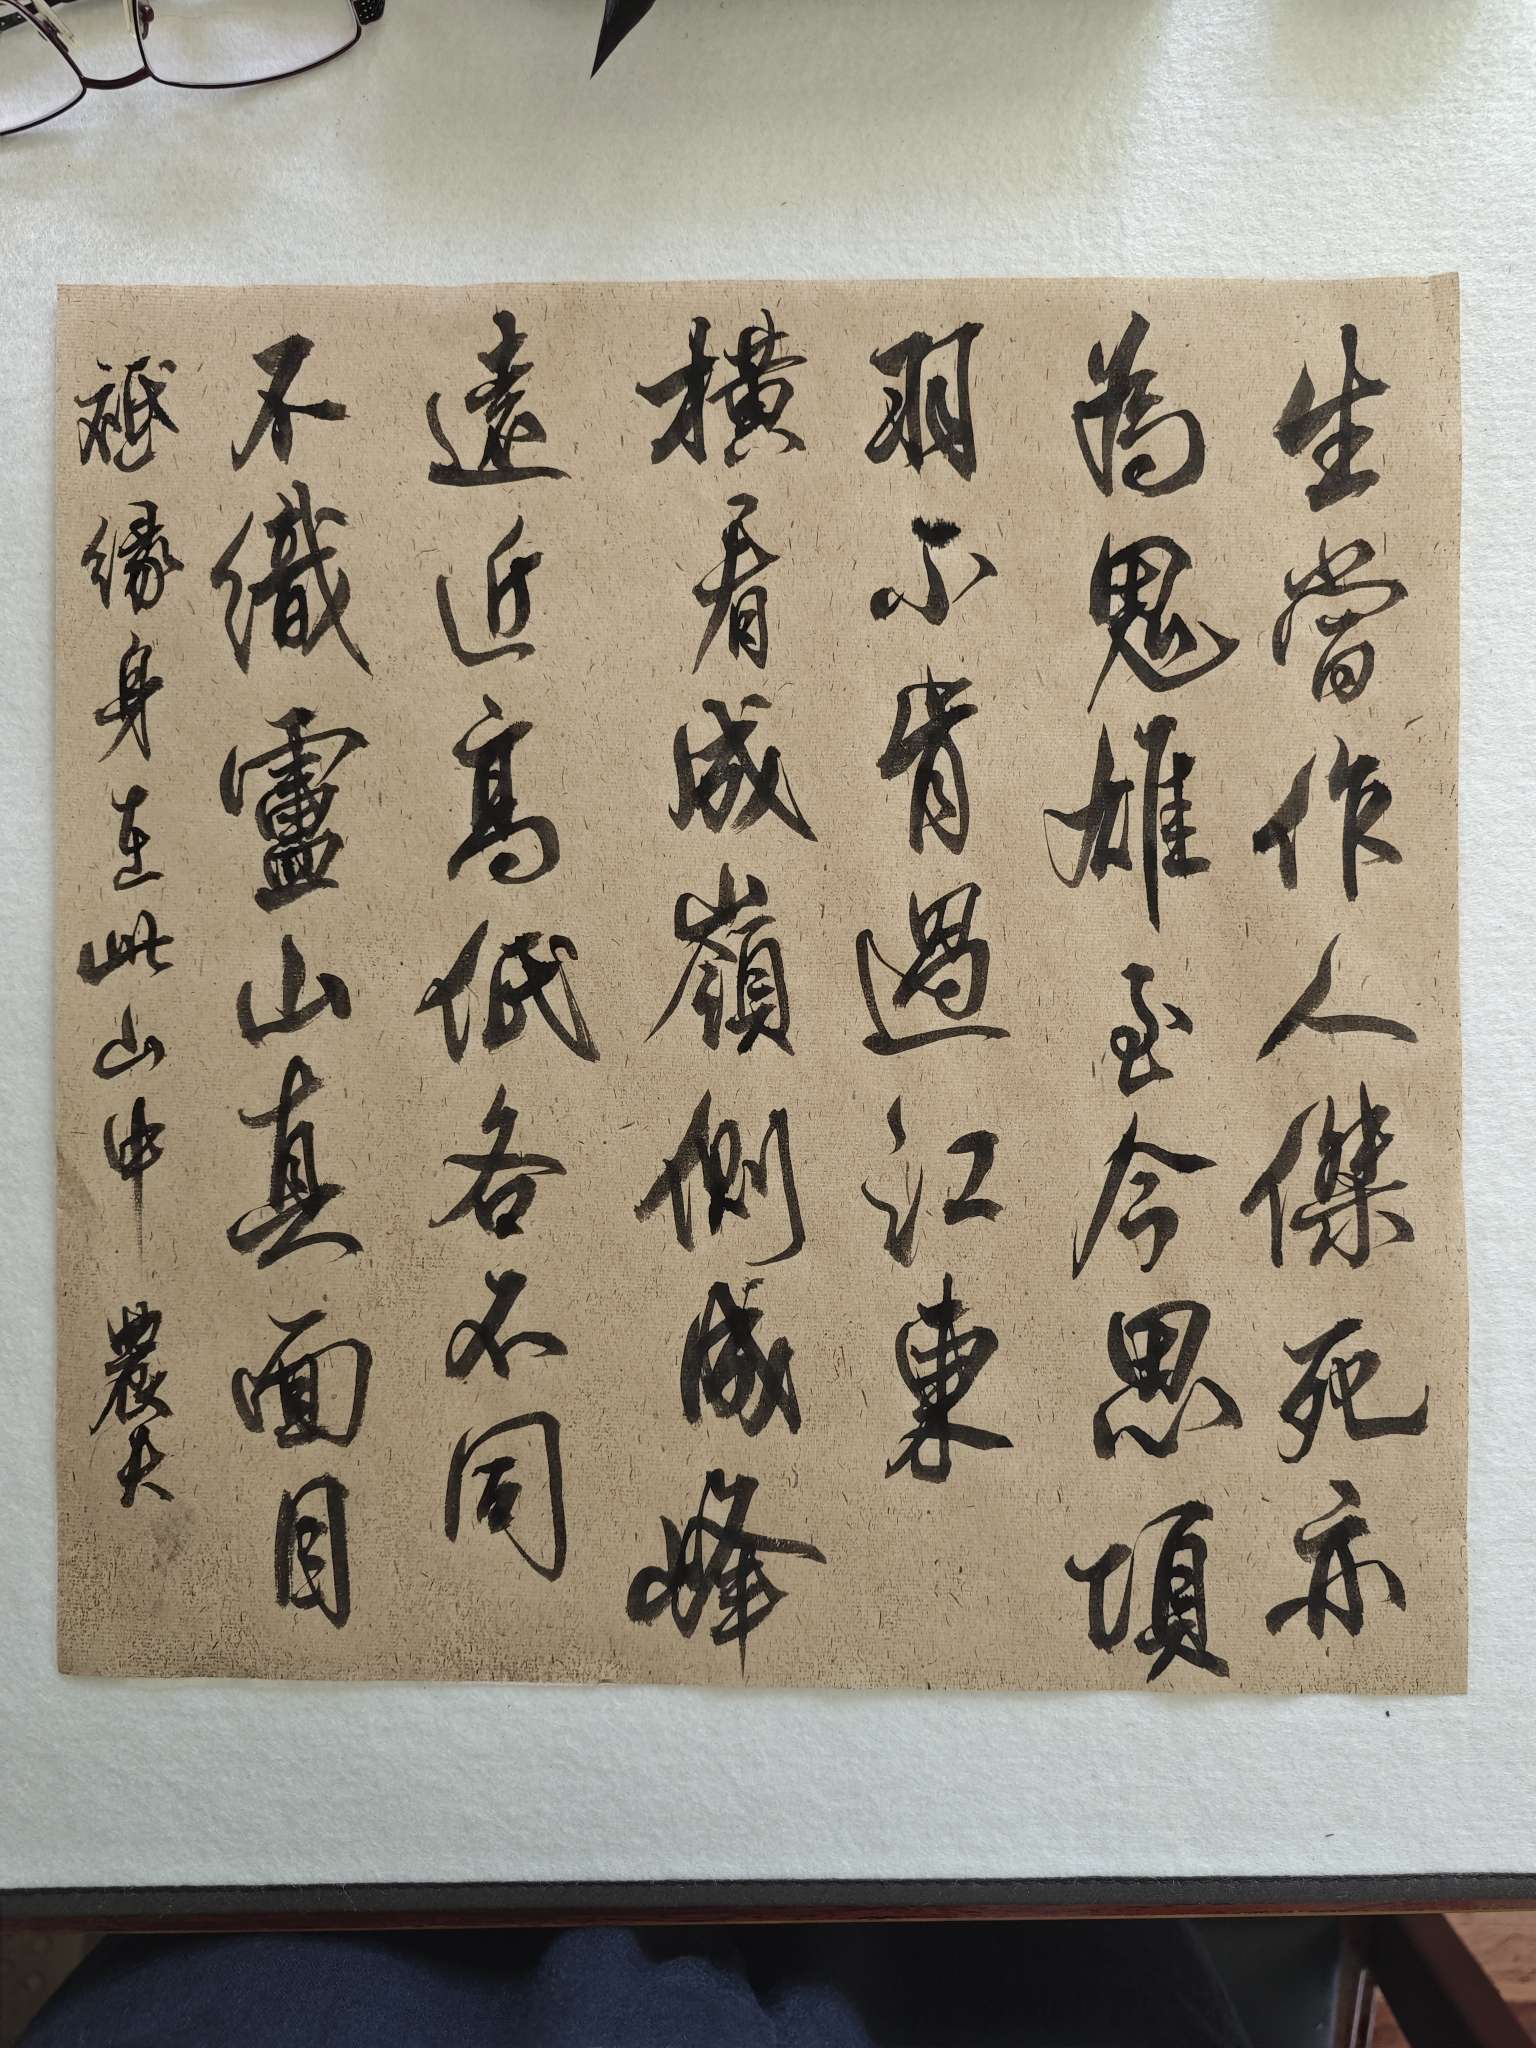 生當作人傑死亦
為鬼雄至今思項
羽不肯過江東
橫看成嶺側成峰
遠近高低各不同
不織廬山真面目
祇緣身在此山中 農夫